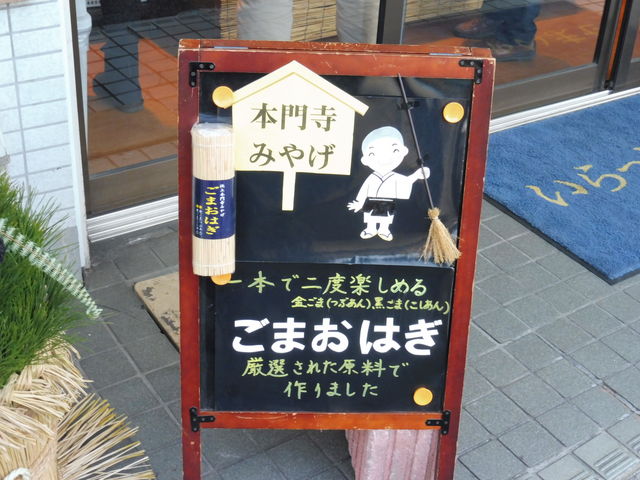 本門寺
みやげ
ごまおはぎ
一本で二度楽しめる
金ごま(つぶあん)、黒ごま(こしあん)
ごまおはぎ
厳選された原料で
作りました
いらっ